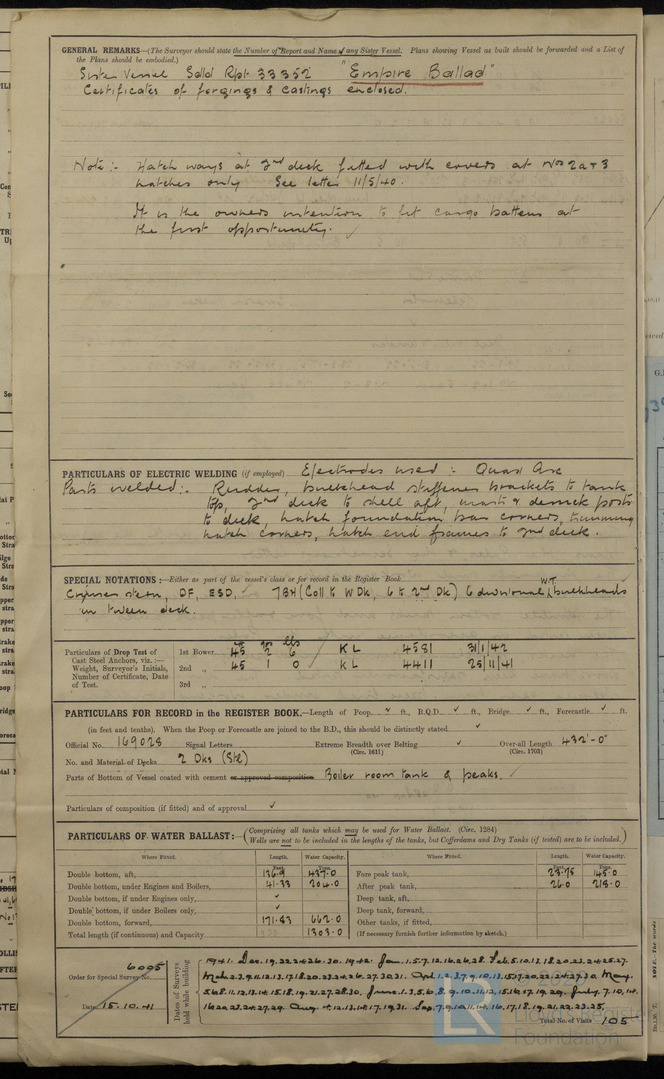 GENERAL REMARKS—(The Surveyor should state the Number of Report and Name of any Sister Vessel. Plans showing Vessel as built should be forwarded and a List of
the Plans should be embodied.)
Sister Vessel Sdld Rpt 33352 "Empire Ballad"
Certificates of forgings & castings enclosed.
Note:- Hatch ways at 2nd deck fitted with covers at Nos 2 & 3
hatches only See letter 11/5/40.
It is the owners intention to fit cargo battens at
the first opportunity.
PARTICULARS OF ELECTRIC WELDING (if employed) Electrodes used : Quasi Arc
Parts welded:- Rudder, bulkhead stiffener brackets to tank
top, 2nd deck to shell aft, masts & derrick posts
to deck, hatch foundation bar corners, trimming
hatch corners, hatch end frames to 2nd deck.
SPECIAL NOTATIONS :—Either as part of the vessel's class or for record in the Register Book
Cruiser stern, DF, ESD, 7BH (Coll to W Dk, 6 to 2nd Dk) 6 divisional W.T. bulkheads
in tween deck.
Particulars of Drop Test of
Cast Steel Anchors, viz. :—
Weight, Surveyor's Initials,
Number of Certificate, Date
of Test.
cwt qrs lbs
1st Bower 45 2 6 KL 4581 31/1/42
2nd „ 45 1 0 KL 4411 25/11/41
3rd „
PARTICULARS FOR RECORD in the REGISTER BOOK.—Length of Poop ✓ ft., R.Q.D. ✓ ft., Bridge ✓ ft., Forecastle ✓ ft.
(in feet and tenths). When the Poop or Forecastle are joined to the B.D., this should be distinctly stated ✓
Official No. 169028 Signal Letters Extreme Breadth over Belting (Circ. 1611) ✓ Over-all Length (Circ. 1703) 432'-0"
No. and Material of Decks 2 Dks (Stl)
Parts of Bottom of Vessel coated with cement or approved composition Boiler room tank & peaks.
Particulars of composition (if fitted) and of approval ✓
PARTICULARS OF WATER BALLAST:— (Comprising all tanks which may be used for Water Ballast. (Circ. 1284)
Wells are not to be included in the lengths of the tanks, but Cofferdams and Dry Tanks (if tested) are to be included.)
Where Fitted. Length. Water Capacity. Where Fitted. Length. Water Capacity.
Feet. Tons. Feet. Tons.
Double bottom, aft, 136.9 437.0 Fore peak tank, 23.75 145.0
Double bottom, under Engines and Boilers, 41.33 204.0 After peak tank, 26.0 213.0
Double bottom, if under Engines only, ✓ Deep tank, aft,
Double bottom, if under Boilers only, ✓ Deep tank, forward,
Double bottom, forward, 171.83 662.0 Other tanks, if fitted,
Total length (if continuous) and Capacity 1303.0 (If necessary furnish further information by sketch.)
Order for Special Survey No. 6005
Date 15.10.41
Dates of Surveys held while building
1941. Dec. 19.22.24.26.30. 1942. Jan. 1.5.7.12.16.26.28. Feb. 5.10.13.18.20.23.24.25.27.
Mch. 2.3.9.11.12.13.17.18.20.23.24.26.27.30.31. Apl. 1.2.3.7.9.10.13.15.17.20.22.24.27.30. May.
5.6.8.11.12.13.14.15.18.19.21.27.28.30. June. 1.3.5.6.8.9.10.11.12.15.16.17.19.29. July. 7.10.14.
16.20.23.24.27.29. Aug. 4.12.13.14.17.19.31. Sep. 7.9.10.11.14.16.17.18.19.21.22.23.25.
Total No. of Visits 105
Lloyd's Register
Foundation